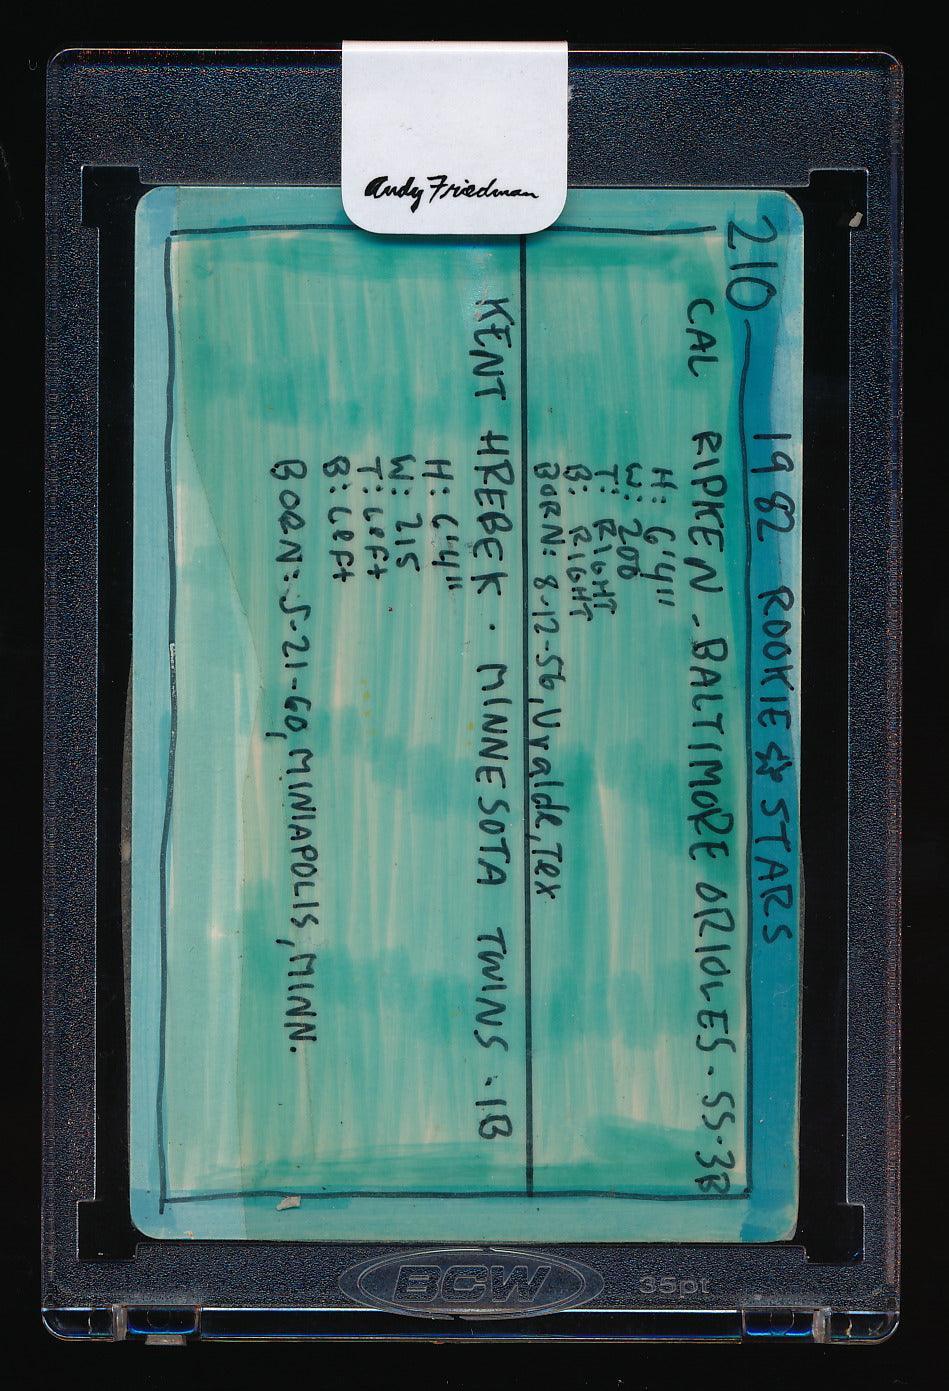 Andy Friedman
210
1982 ROOKIE ☆ STARS
CAL RIPKEN - BALTIMORE ORIOLES - SS-3B
H: 6'4"
W: 200
T: RIGHT
B: RIGHT
BORN: 8-12-56, Uvalde, Tex
KENT HREBEK · MINNESOTA TWINS · 1B
H: 6'4"
W: 215
T: LEFT
B: LEFT
BORN: 5-21-60, MINIAPOLIS, MINN.
BCW
35pt